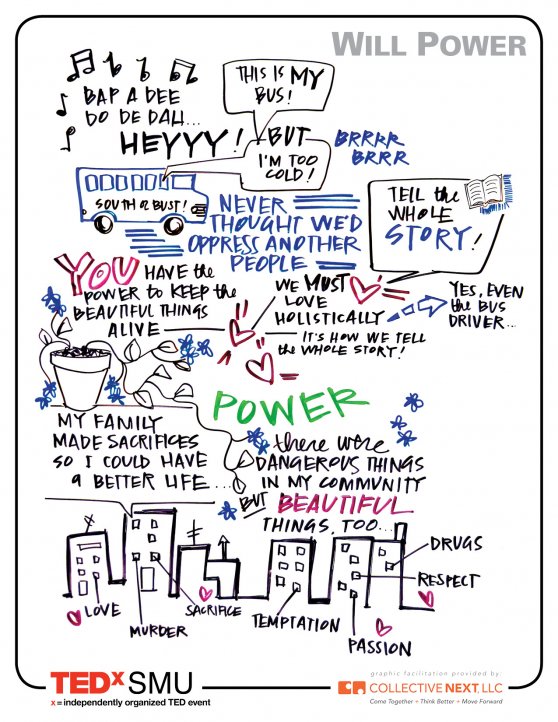 WILL POWER
BAP A DEE
DO DE DAH...
HEYYY!
THIS IS MY
BUS!
BUT
I'M TOO
COLD!
BRRRR
BRRR
SOUTH OR BUST!
NEVER
THOUGHT WE'D
OPPRESS ANOTHER
PEOPLE
TELL the
WHOLE
STORY!
YOU HAVE the
POWER to KEEP the
BEAUTIFUL THINGS
ALIVE
WE MUST
LOVE
HOLISTICALLY
YES, EVEN
the BUS
DRIVER...
IT'S HOW WE TELL
the WHOLE STORY!
POWER
MY FAMILY
MADE SACRIFICES
SO I COULD HAVE
A BETTER LIFE...
there were
DANGEROUS THINGS
IN MY COMMUNITY
BUT BEAUTIFUL
THINGS, TOO...
DRUGS
RESPECT
LOVE
MURDER
SACRIFICE
TEMPTATION
PASSION
TEDxSMU
x = independently organized TED event
graphic facilitation provided by:
COLLECTIVE NEXT, LLC
Come Together + Think Better + Move Forward